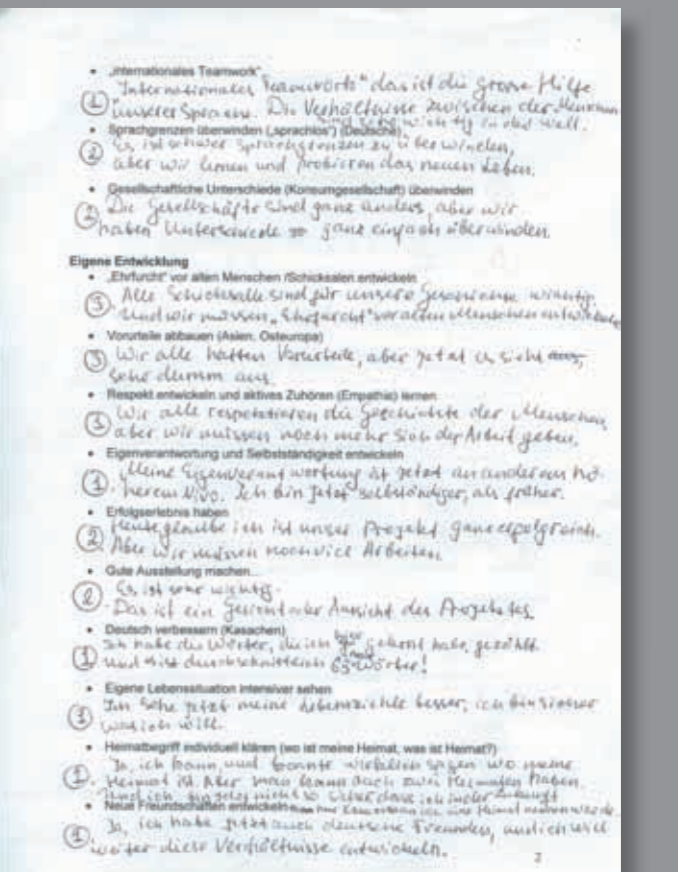 • „Internationales Teamwork"
Internationales Teamwörts" das ist die grosse Hilfe
① unserer Sprache. Die Verhältnisse zwischen der Menschen
sind sehr wichtig in der Welt.
• Sprachgrenzen überwinden („sprachlos") (Deutsche)
② Es ist schwer Sprachgrenzen zu überwinden,
aber wir lernen und probieren das neuen Leben.
• Gesellschaftliche Unterschiede (Konsumgesellschaft) überwinden
② Die Gesellschäfte sind ganz anders, aber wir
haben Unterschiede ganz einfach überwinden.
Eigene Entwicklung
• „Ehrfurcht" vor alten Menschen /Schicksalen entwickeln
③ Alle Schicksalle sind für unsere Geschichte wichtig.
Und wir müssen „Ehrfurcht" vor alten Menschen entwickeln
• Vorurteile abbauen (Asien, Osteuropa)
③ Wir alle hatten Vorurteile, aber jetzt es sieht
sehr dumm aus.
• Respekt entwickeln und aktives Zuhören (Empathie) lernen
③ Wir alle respektieren die Geschichte der Menschen,
aber wir müssen noch mehr sich der Arbeit geben.
• Eigenverantwortung und Selbstständigkeit entwickeln
①. Meine Eigenverantwortung ist jetzt an anderem hö-
herem Nivo. Ich bin jetzt selbständiger, als früher.
• Erfolgserlebnis haben
② Heute glaube ich ist unser Projekt ganz erfolgreich.
Aber wir müssen noch viel Arbeiten.
• Gute Ausstellung machen...
② Es ist sehr wichtig.
Das ist ein Ansicht des Projektes.
• Deutsch verbessern (Kasachen)
① Ich habe die Wörter, die ich hier gelernt habe, gezählt.
Und es ist durchschnittlich Wörter!
• Eigene Lebenssituation intensiver sehen
③ Ich sehe jetzt meine besser, ich bin sicher
was ich will.
• Heimatbegriff individuell klären (wo ist meine Heimat, was ist Heimat?)
①. Ja, ich kann, und konnte sagen wo meine
Heimat ist. Aber man kann auch zwei haben.
Und ich bin nicht so sicher dass ich in der Zukunft
• Neue Freundschaften entwickeln eine Heimat nennen werde.
① Ja, ich habe jetzt auch deutsche Freunden, und ich will
weiter diese Verhältnisse entwickeln.
2